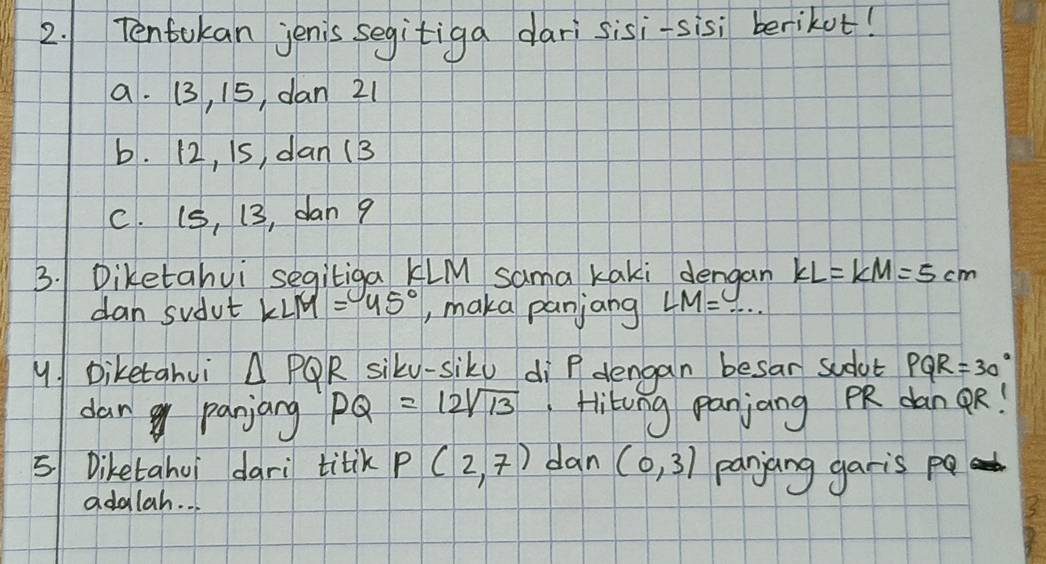 2. Tentukan jenis segitiga dari sisi-sisi berikut!
a. 13, 15, dan 21
b. 12, 15, dan 13
c. 15, 13, dan 9
3. Diketahui segitiga KLM sama kaki dengan KL = KM = 5 cm
dan sudut KLM = 45°, maka panjang LM = ....
4. Diketahui Δ PQR siku-siku di P dengan besar sudut PQR = 30°
dan panjang PQ = 12√13. Hitung panjang PR dan QR!
5. Diketahui dari titik P (2,7) dan (0,3) panjang garis PQ
adalah...